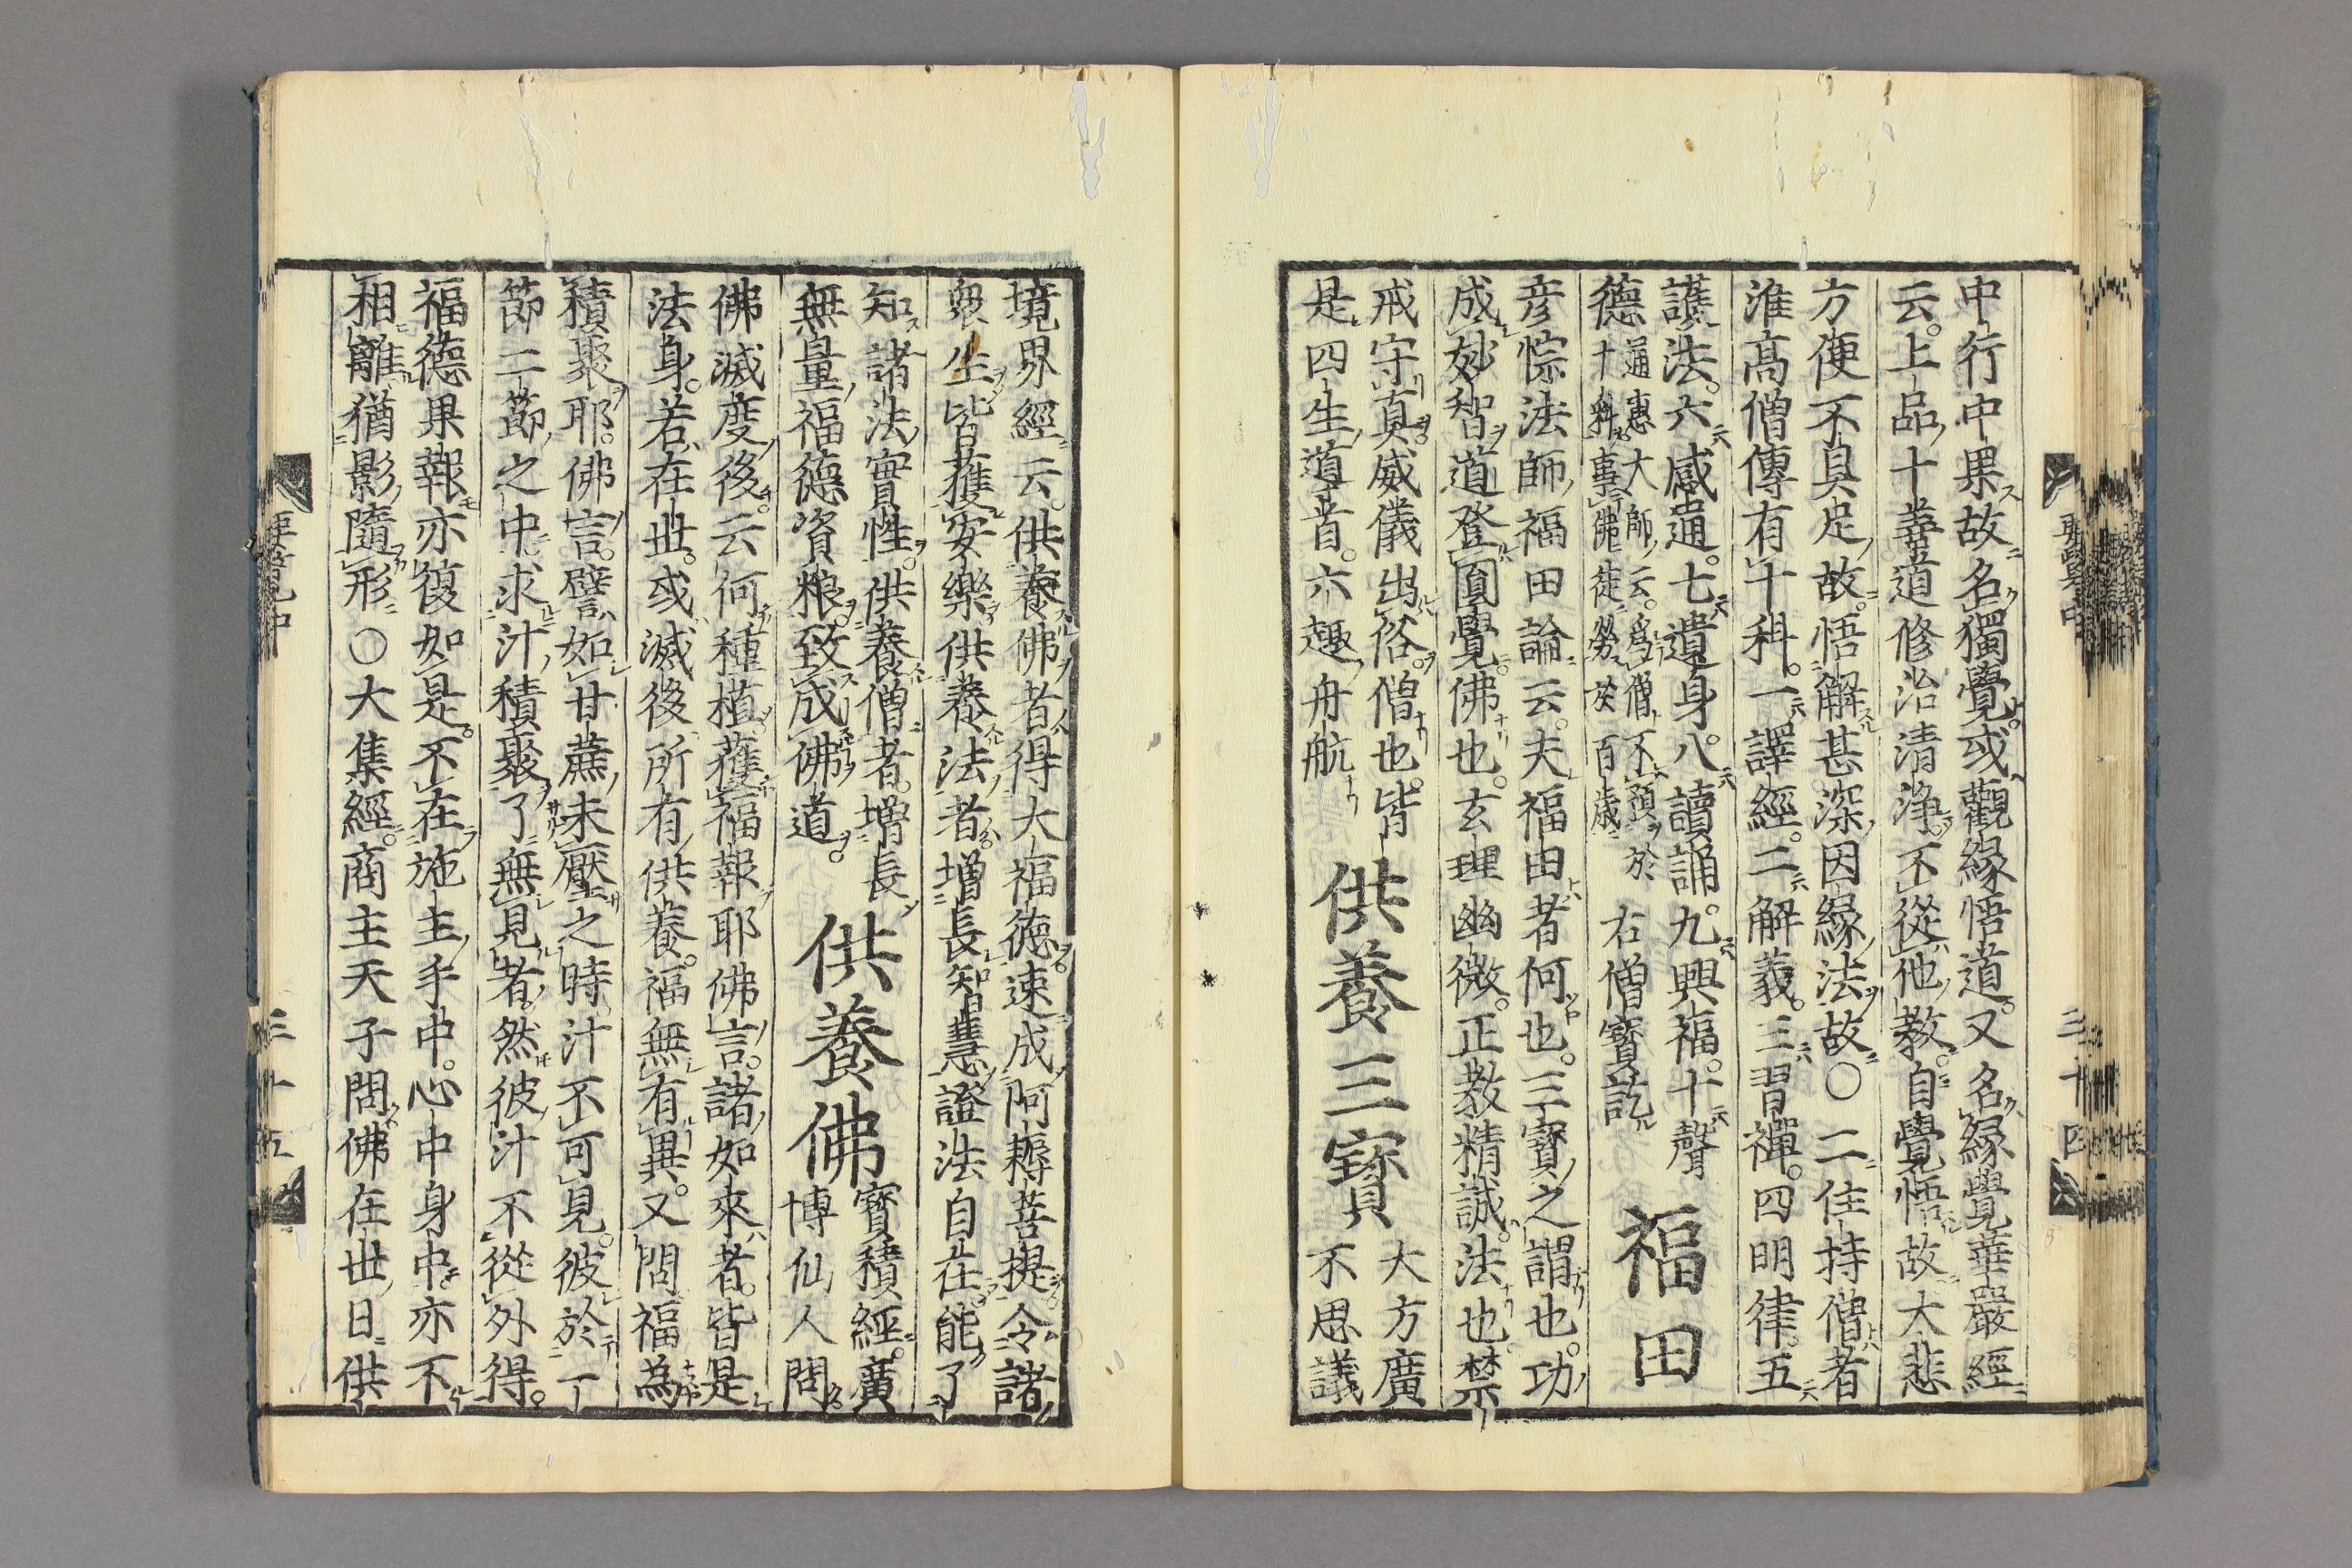 中行中果故名獨覺或觀緣悟道。又名緣覺華嚴經
云。上品十善道修治清淨。不從他教。自覺悟故大悲
方便不具足故。悟解甚深因緣法故〇二住持僧者
淮高僧傳有十科。一譯經。二解義。三習禪。四明律。五
護法。六感通。七遺身。八讀誦。九興福。十聲
德
通惠大師云。為僧不預於
十科事佛徒勞於百歲
右僧寶訖
福田
彦悰法師福田論云。夫福田者何也。三寶之謂也。功
成妙智道登圓覺佛也。玄理幽微。正教精誠。法也。禁
戒守真。威儀出俗。僧也。皆
是四生道首。六趣舟航
供養三寶
大方廣
不思議
境界經云。供養佛者得大福德速成阿耨菩提。令諸
衆生皆獲安樂供養法者。增長智慧證法自在。能了
知諸法實性。供養僧者。增長
無量福德資粮致成佛道。
供養佛
寶積經。廣
博仙人問
佛滅度後。云何種植獲福報耶佛言。諸如來者。皆是
法身。若在世。或滅後所有供養。福無有異。又問福為
積聚耶。佛言。譬如甘蔗未壓之時。汁不可見。彼於一
節二節之中求汁積聚了無見者。然彼汁不從外得。
福德果報亦復如是。不在施主手中。心中身中。亦不
相離猶影隨形〇大集經。商主天子問佛在世日供
三十四
三十五